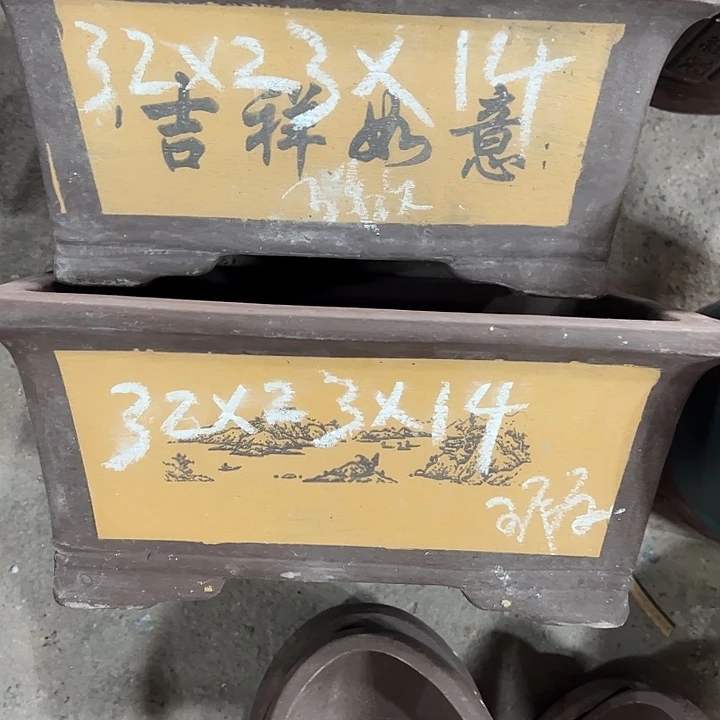 32x23x14
吉祥如意
32x23x14